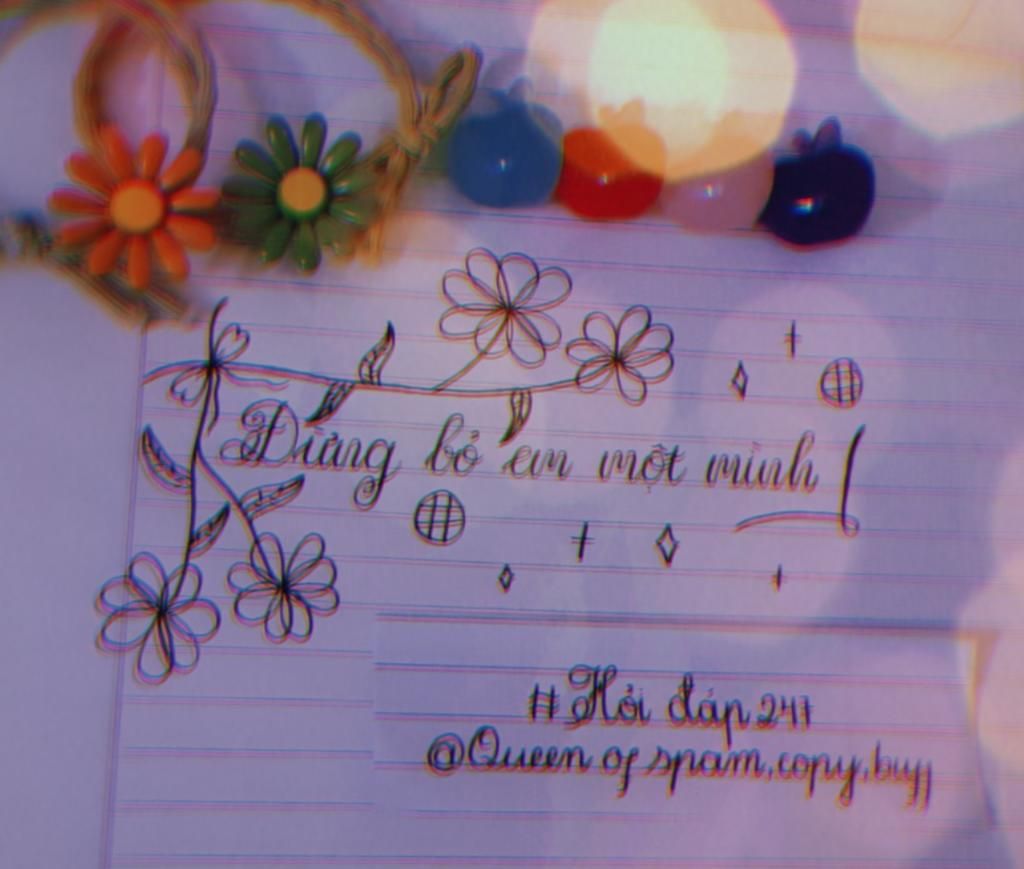 Đừng bỏ em một mình
#Hỏi đáp 247
@Queen of spam, copy, buff